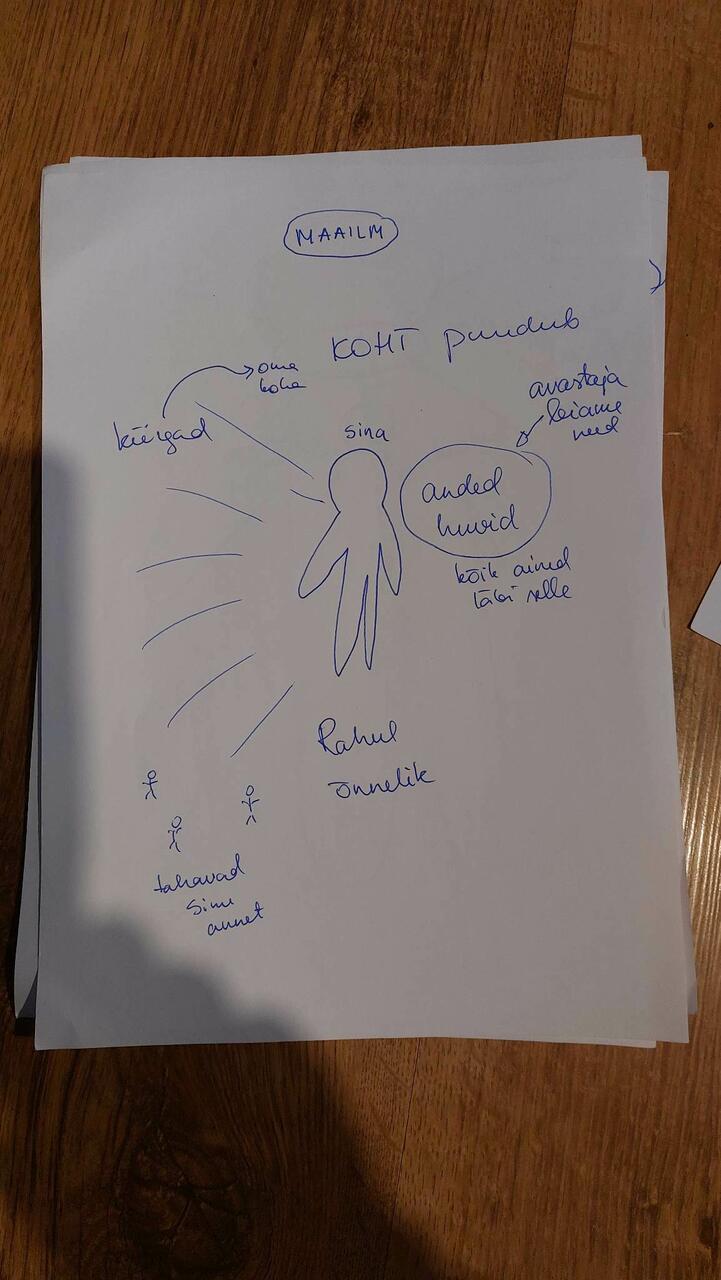 MAAILM
KOHT puudub
oma
koha
avastaja
leiame
need
kiirgad
sina
anded
huvid
kõik ained
läbi selle
Rahul
õnnelik
tahavad
sinu
annet